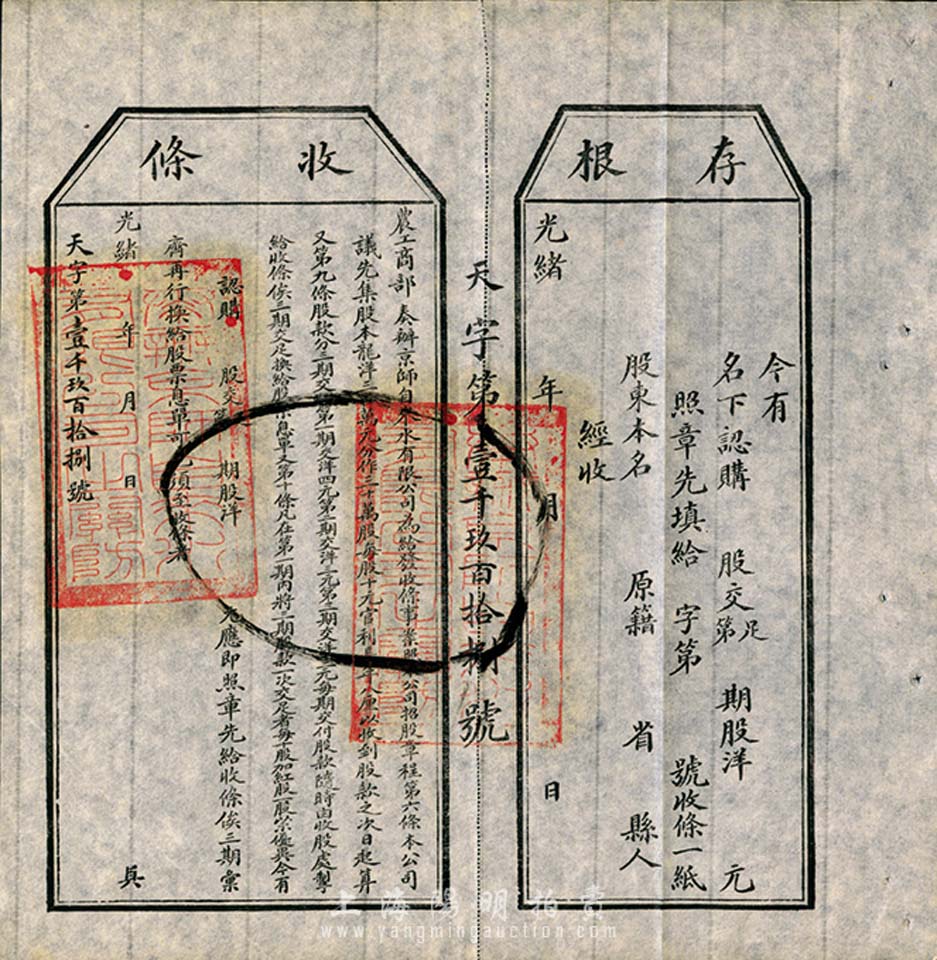 存根
今有
名下認購 股交第足 期股洋 元
照章先填給 字第 號收條一紙
股東本名 原籍 省 縣人
經收
光緒 年 月 日
天字第壹千玖百拾捌號
收條
農工商部奏辦京師自來水有限公司為給發收條事業照公司招股章程第六條本公司
議先集股本龍洋三百萬元分作三十萬股每股十元官利長年八厘以收到股款之次日起算
又第九條股款分三期交付第一期交洋四元第二期交洋三元第三期交洋三元每期交付股款隨時由收股處掣
給收條俟三期交足換給股票息單又第十條凡在第一期內將三期股款一次交足者每十股加紅股一股以示優異今有
認購 股交第 期股洋 元應即照章先給收條俟三期彙
齊再行換給股票息單可也須至收條者
光緒 年 月 日 具
天字第壹千玖百拾捌號
上海陽明拍賣
www.yangmingauction.com